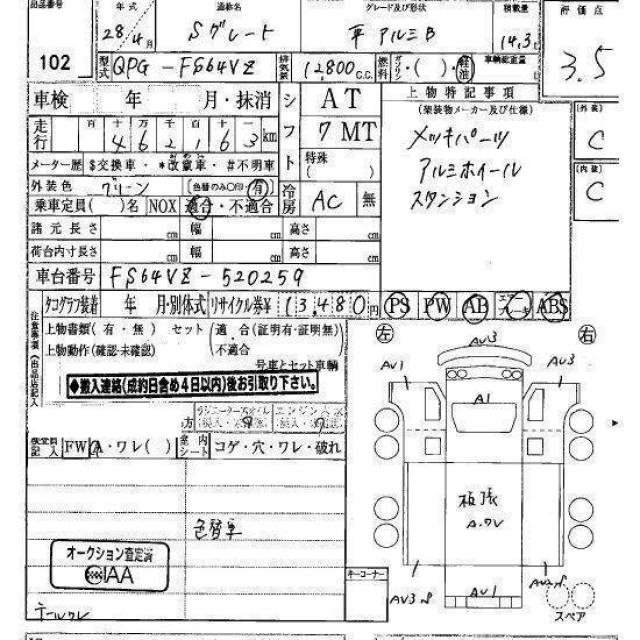 出品番号 年式 通称名 グレード及び形状 積載量 評価点
102 28/4月 Sグレード 平 アルミB 14.3t 3.5
型式 QPG-FS64VZ 排気量 12800C.C. 燃料 ガソリン・( )・軽油 車輌総重量
車検 年 月・抹消 シフト AT 上物特記事項 [外装]
(架装物メーカー及び仕様) C
走行 百十万千百十一
462163km 7MT メッキパーツ
メーター歴 $交換車・*改ザン車・#不明車 特殊( ) アルミホイール [内装]
外装色 グリーン [色替のみ○印・有] 冷房 AC 無 スタンション C
乗車定員( )名 NOX 適合・不適合
諸元長さ cm 幅 cm 高さ cm
荷台内寸長さ cm 幅 cm 高さ cm
車台番号 FS64VZ-520259
タコグラフ装着 年 月・別体式 リサイクル券¥ 13,480円 PS PW AB ABS
注意事項(出品店記入)
上物書類(有・無) セット 適合(証明有・証明無)
上物動作(確認・未確認) 不適合
号車とセット車輌
◆搬入連絡(成約日含め4日以内)後お引取り下さい。
検査員記入 FW A・ワレ( ) 室内シート コゲ・穴・ワレ・破れ
色替車
オークション査定済
CIAA
テールワレ
キーコーナー
左 右
AV3
AV1 AV3
A1
板張
A.ワレ
AV3 AV1
スペア